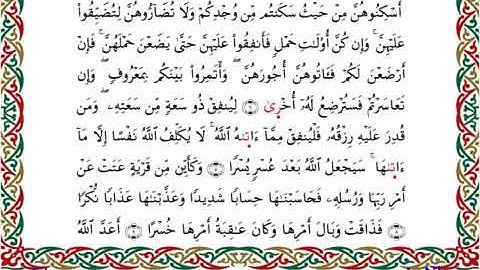 أَسْكِنُوهُنَّ مِنْ حَيْثُ سَكَنتُم مِّن وُجْدِكُمْ وَلَا تُضَآرُّوهُنَّ لِتُضَيِّقُوا۟
عَلَيْهِنَّ ۚ وَإِن كُنَّ أُو۟لَـٰتِ حَمْلٍ فَأَنفِقُوا۟ عَلَيْهِنَّ حَتَّىٰ يَضَعْنَ حَمْلَهُنَّ ۚ فَإِنْ
أَرْضَعْنَ لَكُمْ فَـَٔاتُوهُنَّ أُجُورَهُنَّ ۖ وَأْتَمِرُوا۟ بَيْنَكُم بِمَعْرُوفٍ ۖ وَإِن
تَعَاسَرْتُمْ فَسَتُرْضِعُ لَهُۥٓ أُخْرَىٰ ۝٦ لِيُنفِقْ ذُو سَعَةٍ مِّن سَعَتِهِۦ ۖ وَمَن
قُدِرَ عَلَيْهِ رِزْقُهُۥ فَلْيُنفِقْ مِمَّآ ءَاتَىٰهُ ٱللَّهُ ۚ لَا يُكَلِّفُ ٱللَّهُ نَفْسًا إِلَّا مَآ
ءَاتَىٰهَا ۚ سَيَجْعَلُ ٱللَّهُ بَعْدَ عُسْرٍ يُسْرًا ۝٧ وَكَأَيِّن مِّن قَرْيَةٍ عَتَتْ عَنْ
أَمْرِ رَبِّهَا وَرُسُلِهِۦ فَحَاسَبْنَـٰهَا حِسَابًا شَدِيدًا وَعَذَّبْنَـٰهَا عَذَابًا نُّكْرًا
۝٨ فَذَاقَتْ وَبَالَ أَمْرِهَا وَكَانَ عَـٰقِبَةُ أَمْرِهَا خُسْرًا ۝٩ أَعَدَّ ٱللَّهُ